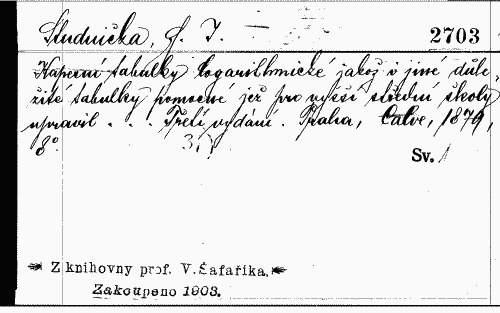 Studnička, F. J.
2703
Kapesní tabulky logarithmické jakož i jiné důle-
žité tabulky pomocné jež pro vyšší střední školy
upravil . . . Třetí vydání. Praha, Calve, 1879,
8°
Sv. 1
Z knihovny prof. V. Šafaříka.
Zakoupeno 1903.